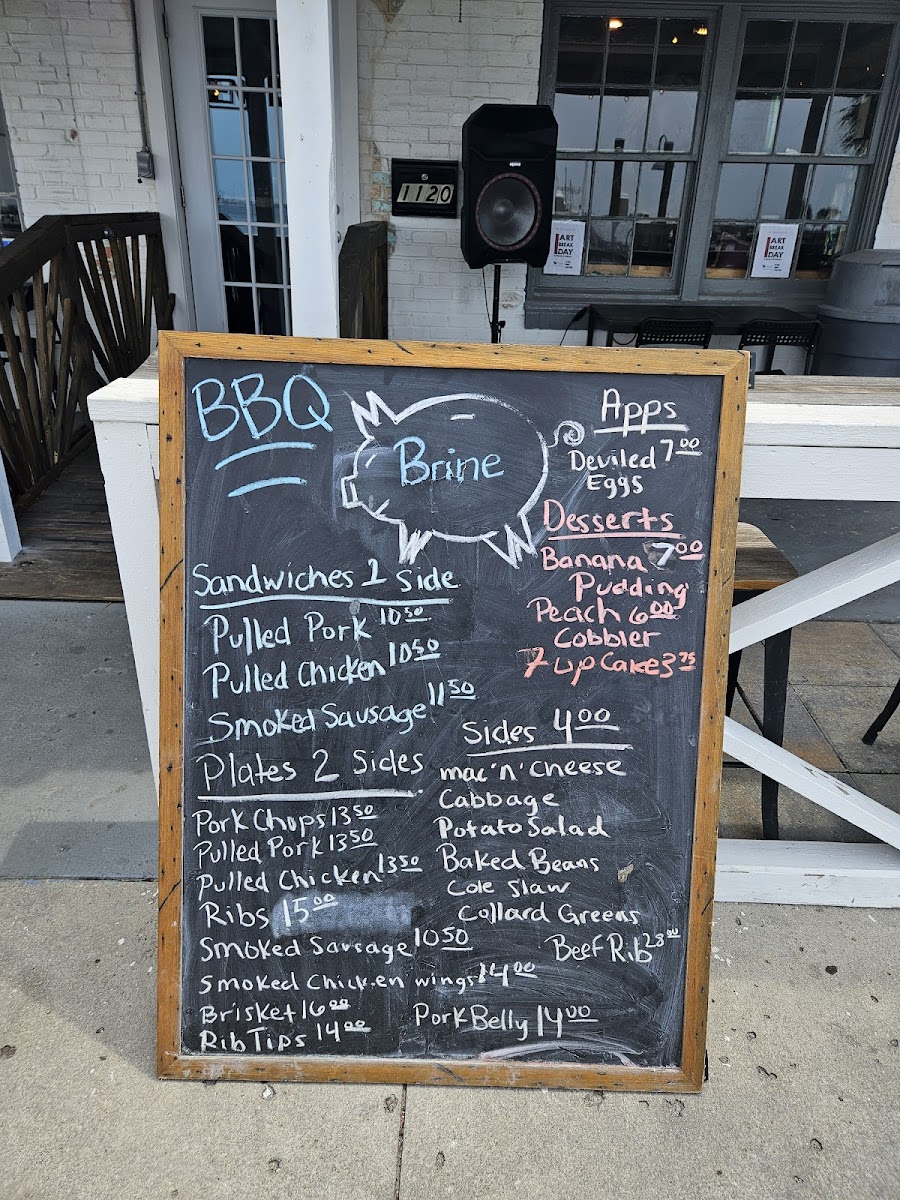 1120
ART
BREAK
DAY
ART
BREAK
DAY
BBQ
Brine
Apps
Deviled 7.00
Eggs
Desserts
Banana 7.00
Pudding
Peach 6.00
Cobbler
7 up Cake 3.75
Sandwiches 1 Side
Pulled Pork 10.50
Pulled Chicken 10.50
Smoked Sausage 11.50
Plates 2 Sides
Pork Chops 13.50
Pulled Pork 13.50
Pulled Chicken 13.50
Ribs 15.00
Smoked Sausage 10.50
Smoked Chicken wings 14.00
Brisket 16.00
Rib Tips 14.00
Sides 4.00
mac 'n' cheese
Cabbage
Potato Salad
Baked Beans
Cole slaw
Collard Greens
Beef Rib 28.00
Pork Belly 14.00